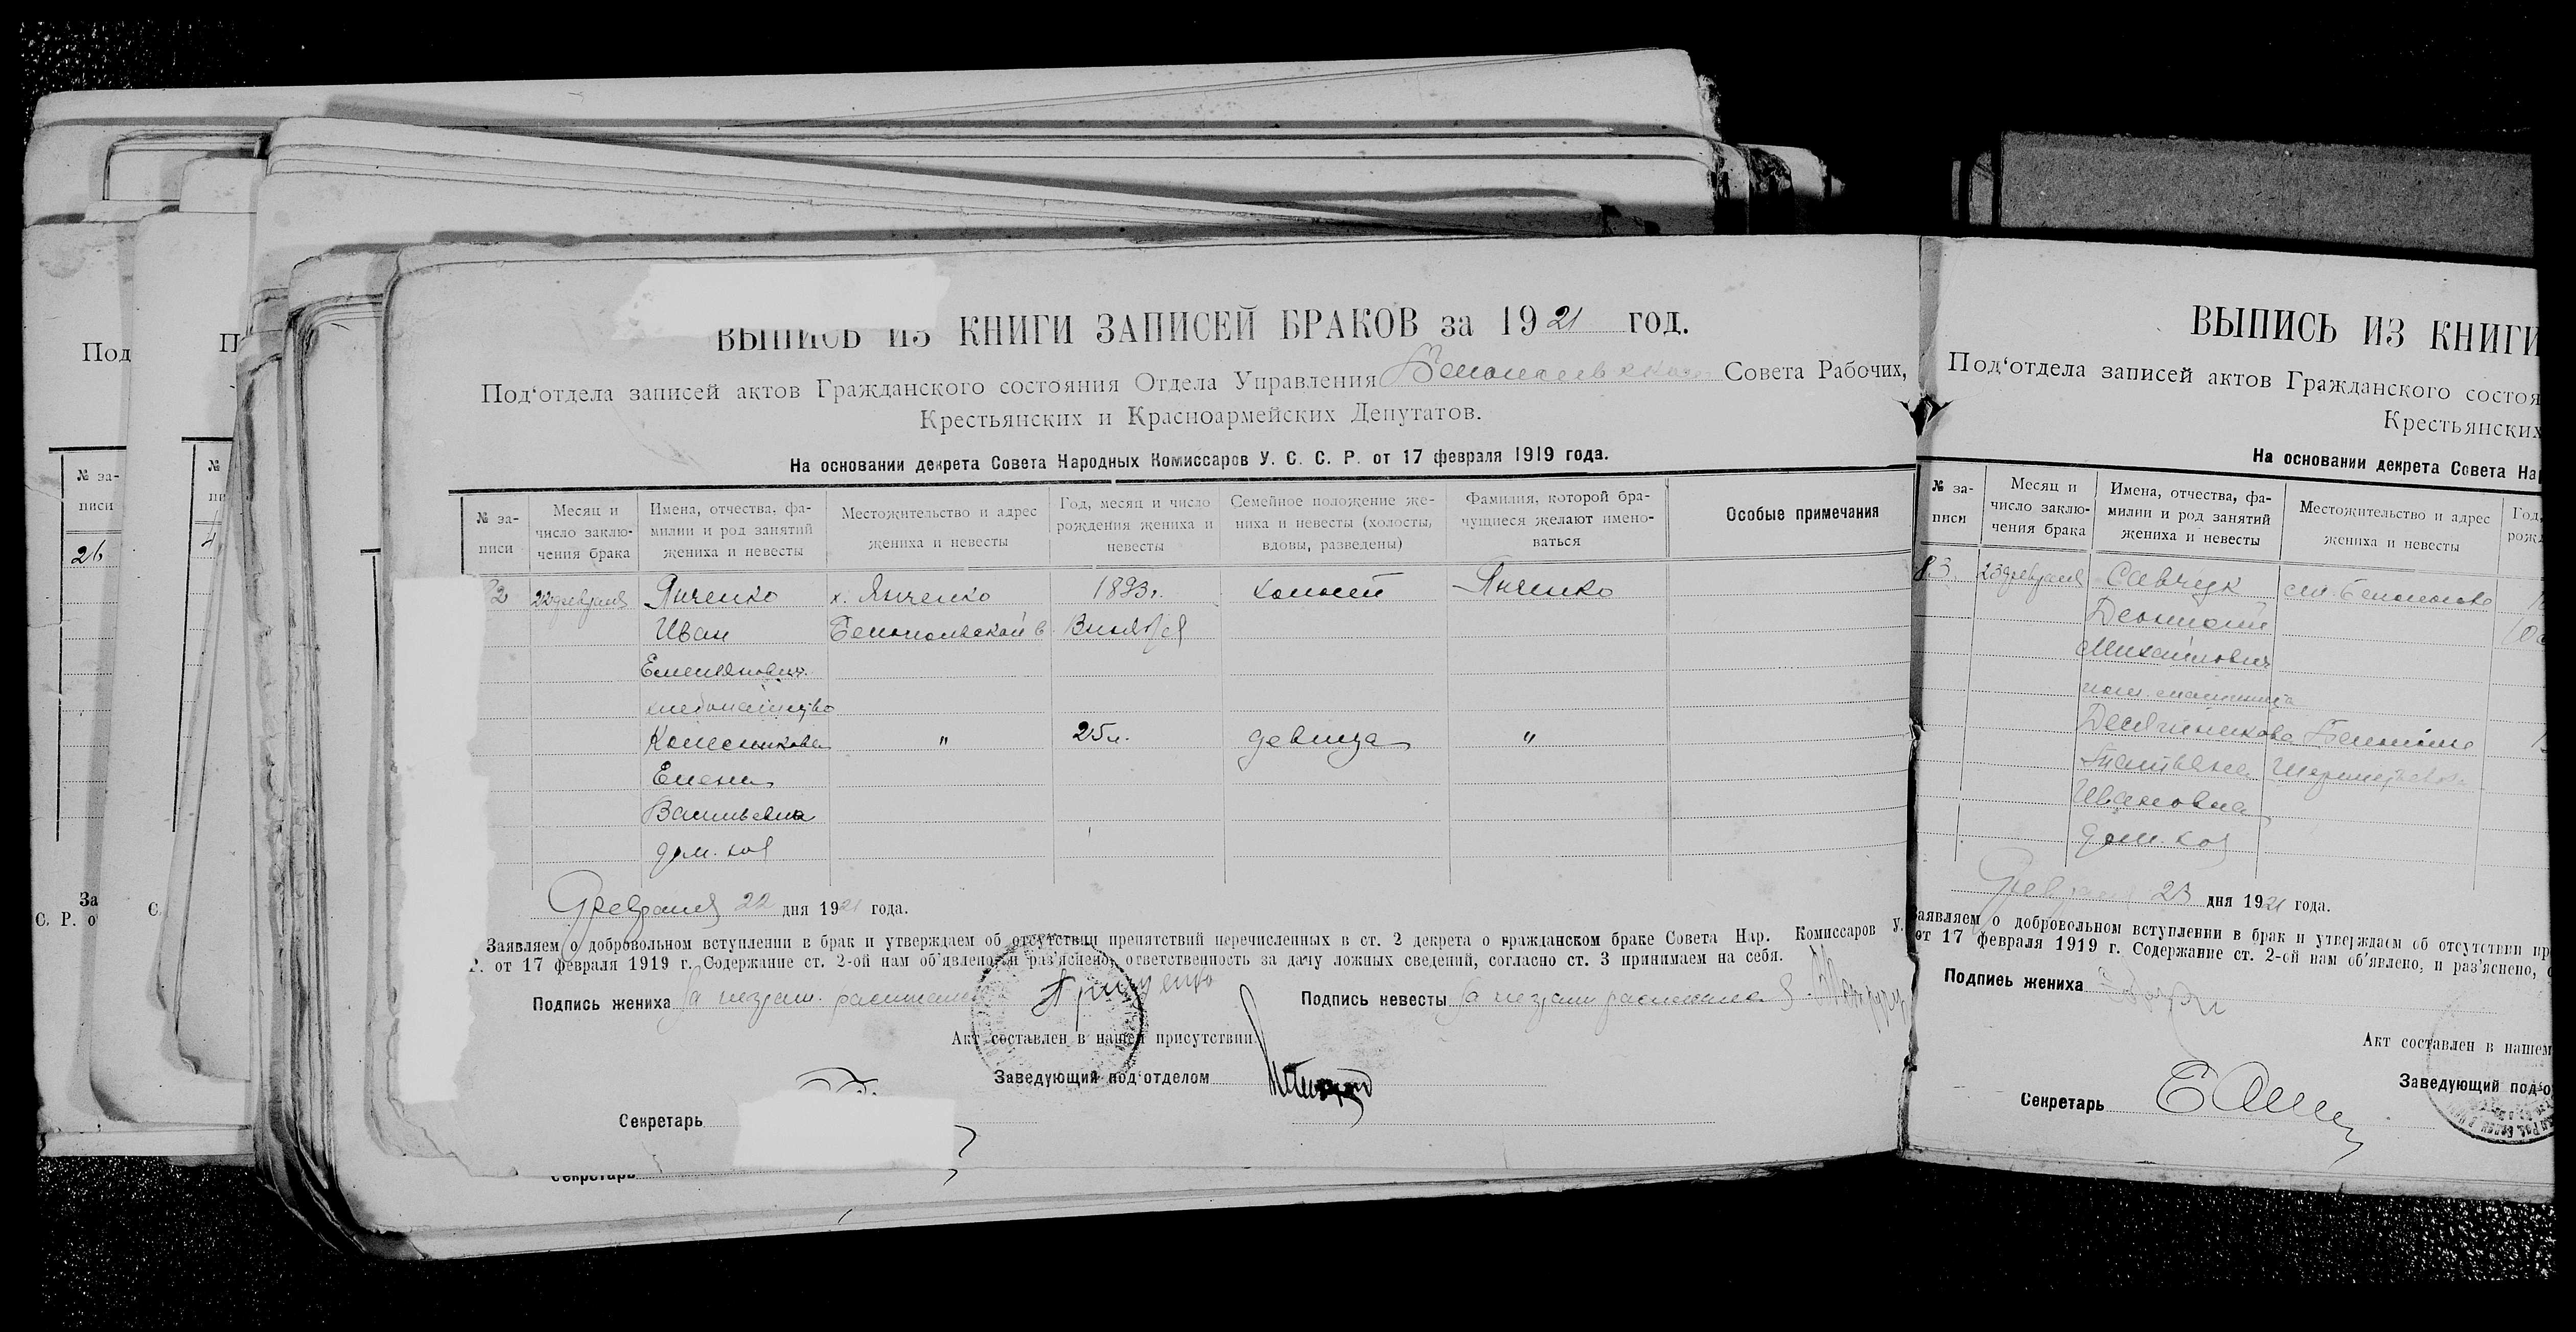 Под
П
№ за-
писи
№
пи
26
За
С. Р. о
С.
ВЫПИСЬ ИЗ КНИГИ ЗАПИСЕЙ БРАКОВ за 1921 год.
Под‘отдела записей актов Гражданского состояния Отдела Управления Совета Рабочих,
Крестьянских и Красноармейских Депутатов.
На основании декрета Совета Народных Комиссаров У. С. С. Р. от 17 февраля 1919 года.
№ за-
писи
Месяц и
число заклю-
чения брака
Имена, отчества, фа-
милии и род занятий
жениха и невесты
Местожительство и адрес
жениха и невесты
Год, месяц и число
рождения жениха и
невесты
Семейное положение же-
ниха и невесты (холосты,
вдовы, разведены)
Фамилия, которой бра-
чущиеся желают имено-
ваться
Особые примечания
2 22 февраля Янченко х. Янченко 1893г. холост Янченко
Иван
Емельянович
хлебопашество
Колесникова " 25 л. девица "
Елена
Васильевна
дом. хоз
Февраля 22 дня 1921 года.
Заявляем о добровольном вступлении в брак и утверждаем об отсутствии препятствий перечисленных в ст. 2 декрета о гражданском браке Совета Нар. Комиссаров У.
Р. от 17 февраля 1919 г. Содержание ст. 2-ой нам об‘явлено, и раз‘яснено, ответственность за дачу ложных сведений, согласно ст. 3 принимаем на себя.
Подпись жениха За неграм.
Подпись невесты За неграм
Акт составлен в нашем присутствии
Заведующий под‘отделом
Секретарь
Секретарь
ВЫПИСЬ ИЗ КНИГИ
Под‘отдела записей актов Гражданского состоя
Крестьянских
На основании декрета Совета На
№ за-
писи
Месяц и
число заклю-
чения брака
Имена, отчества, фа-
милии и род занятий
жениха и невесты
Местожительство и адрес
жениха и невесты
Год,
рожд
83. 23 февраля Савчук
Леонтий
Михайлович
Татьяна
Ивановна
дом. хоз
Февраля 23 дня 1921 года.
Заявляем о добровольном вступлении в брак и утверждаем об отсутствии пр
от 17 февраля 1919 г. Содержание ст. 2-ой нам об‘явлено, и раз‘яснено,
Подпись жениха
Акт составлен в нашем
Заведующий под‘о
Секретарь